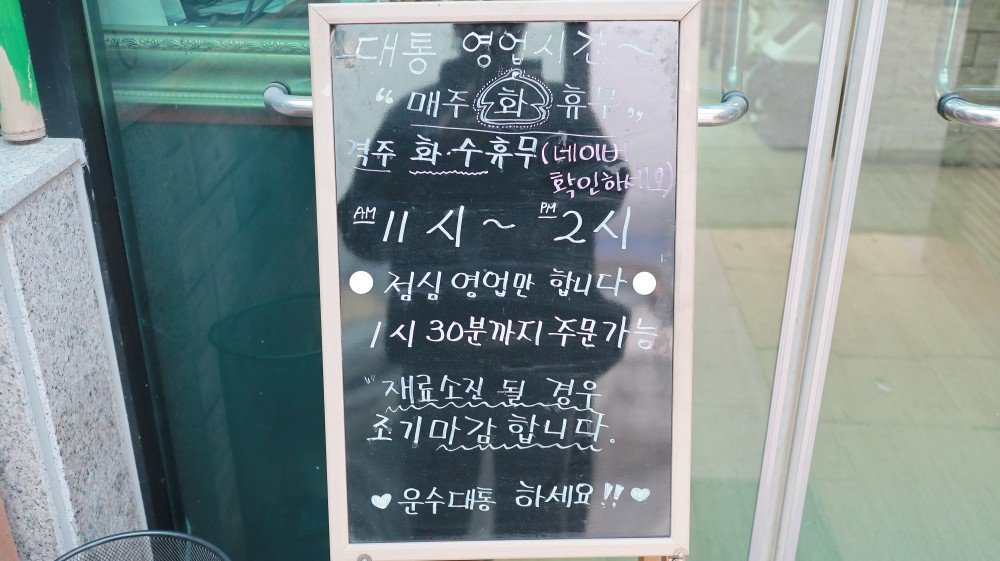 대통 영업시간~
“매주 화 휴무„
격주 화·수휴무(네이버
확인하세요)
AM 11시 ~ PM 2시
점심 영업만 합니다
1시 30분까지 주문가능
"재료소진 될 경우
조기마감 합니다.
♥ 운수대통 하세요!! ♥